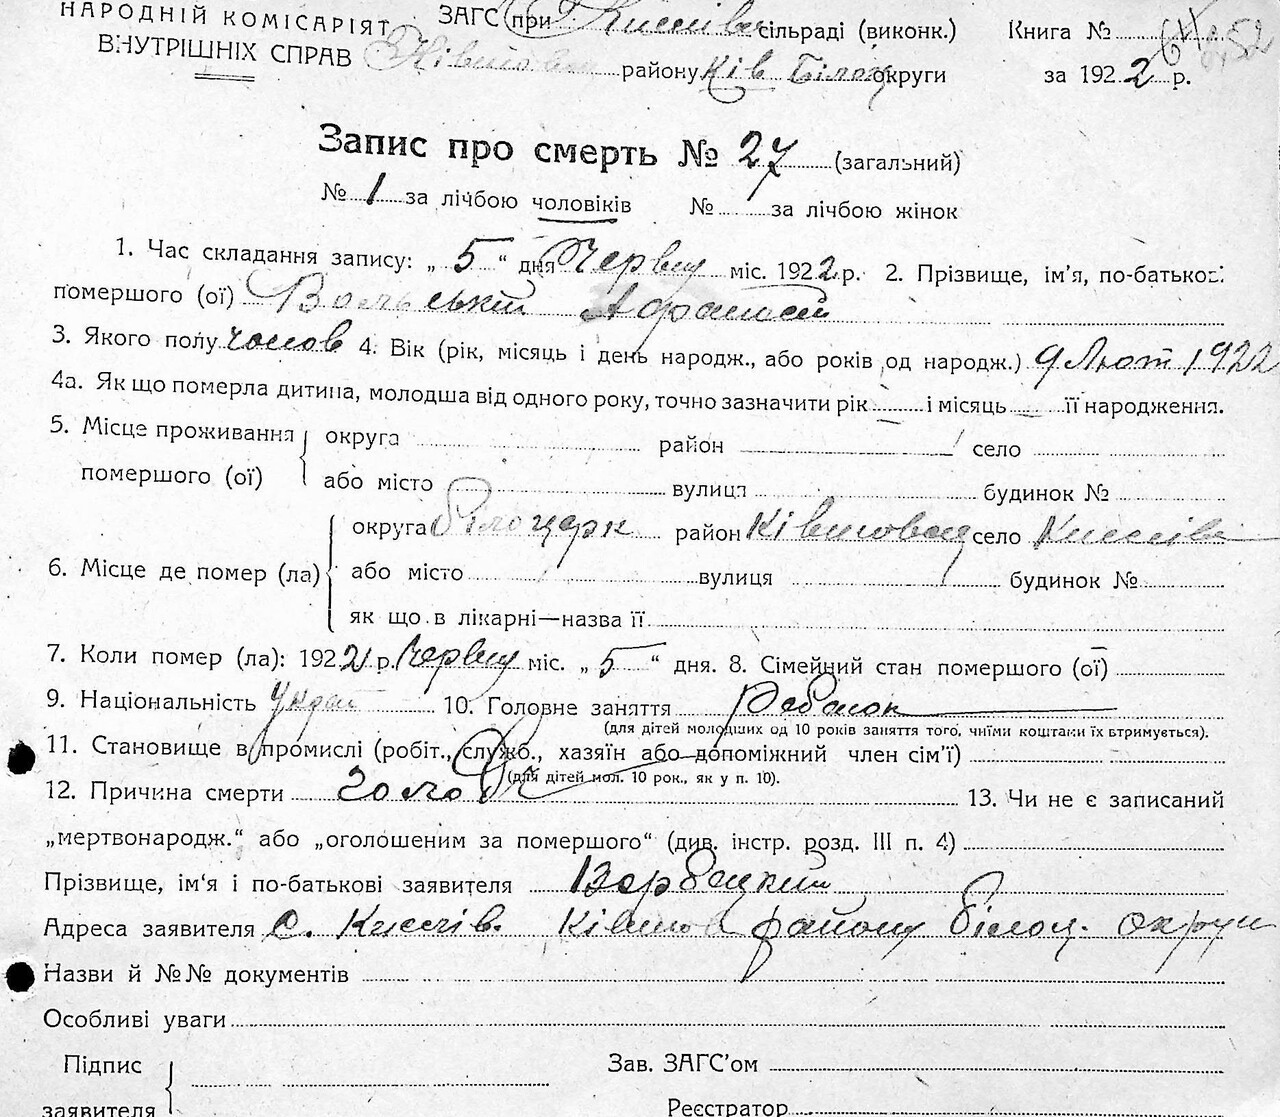 НАРОДНІЙ КОМІСАРІЯТ ЗАГС при сільраді (виконк.) Книга №
ВНУТРІШНІХ СПРАВ району Ків Білоц округи за 1922 р.
Запис про смерть № 27 (загальний)
№ 1 за лічбою чоловіків № за лічбою жінок
1. Час складання запису: „ 5 “ дня Червця міс. 1922 р. 2. Прізвище, ім'я, по-батькові
помершого (ої) Афанасій
3. Якого полу чолов 4. Вік (рік, місяць і день народж., або років од народж.) 9 Лют 1922
4а. Як що померла дитина, молодша від одного року, точно зазначити рік і місяць її народження.
5. Місце проживання округа район село
помершого (ої) або місто вулиця будинок №
округа Білоцерк район Ківшоват село
6. Місце де помер (ла) або місто вулиця будинок №
як що в лікарні—назва її
7. Коли помер (ла): 1922 р. Червця міс. „ 5 “ дня. 8. Сімейний стан помершого (ої)
9. Національність Украї 10. Головне заняття Ребйонок
(для дітей молодших од 10 років заняття того, чиїми коштами їх втримується).
11. Становище в промислі (робіт., службо., хазяїн або допоміжний член сім'ї)
(для дітей мол. 10 рок., як у п. 10).
12. Причина смерти голод 13. Чи не є записаний
„мертвонародж.“ або „оголошеним за помершого“ (див. інстр. розд. III п. 4)
Прізвище, ім'я і по-батькові заявителя Вербицкий
Адреса заявителя с. Ківшов району Білоц. округи
Назви й №№ документів
Особливі уваги
Підпис Зав. ЗАГС'ом
заявителя Реєстратор